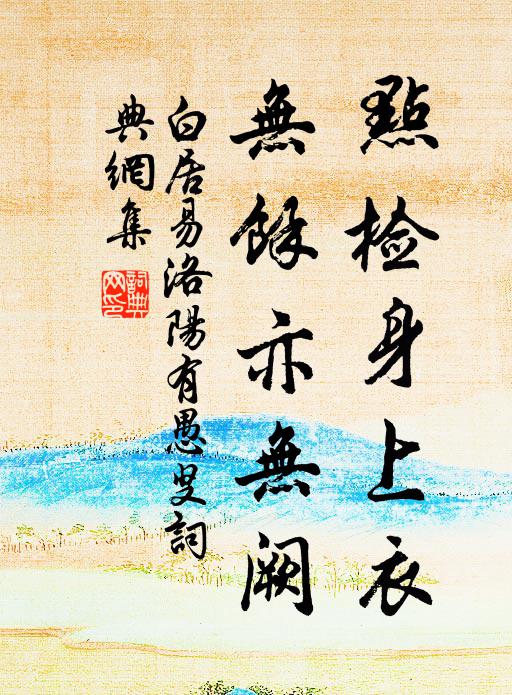 點检身上衣
無餘亦無阙
白居易洛陽有愚叟詞
典網集
詞典
网印